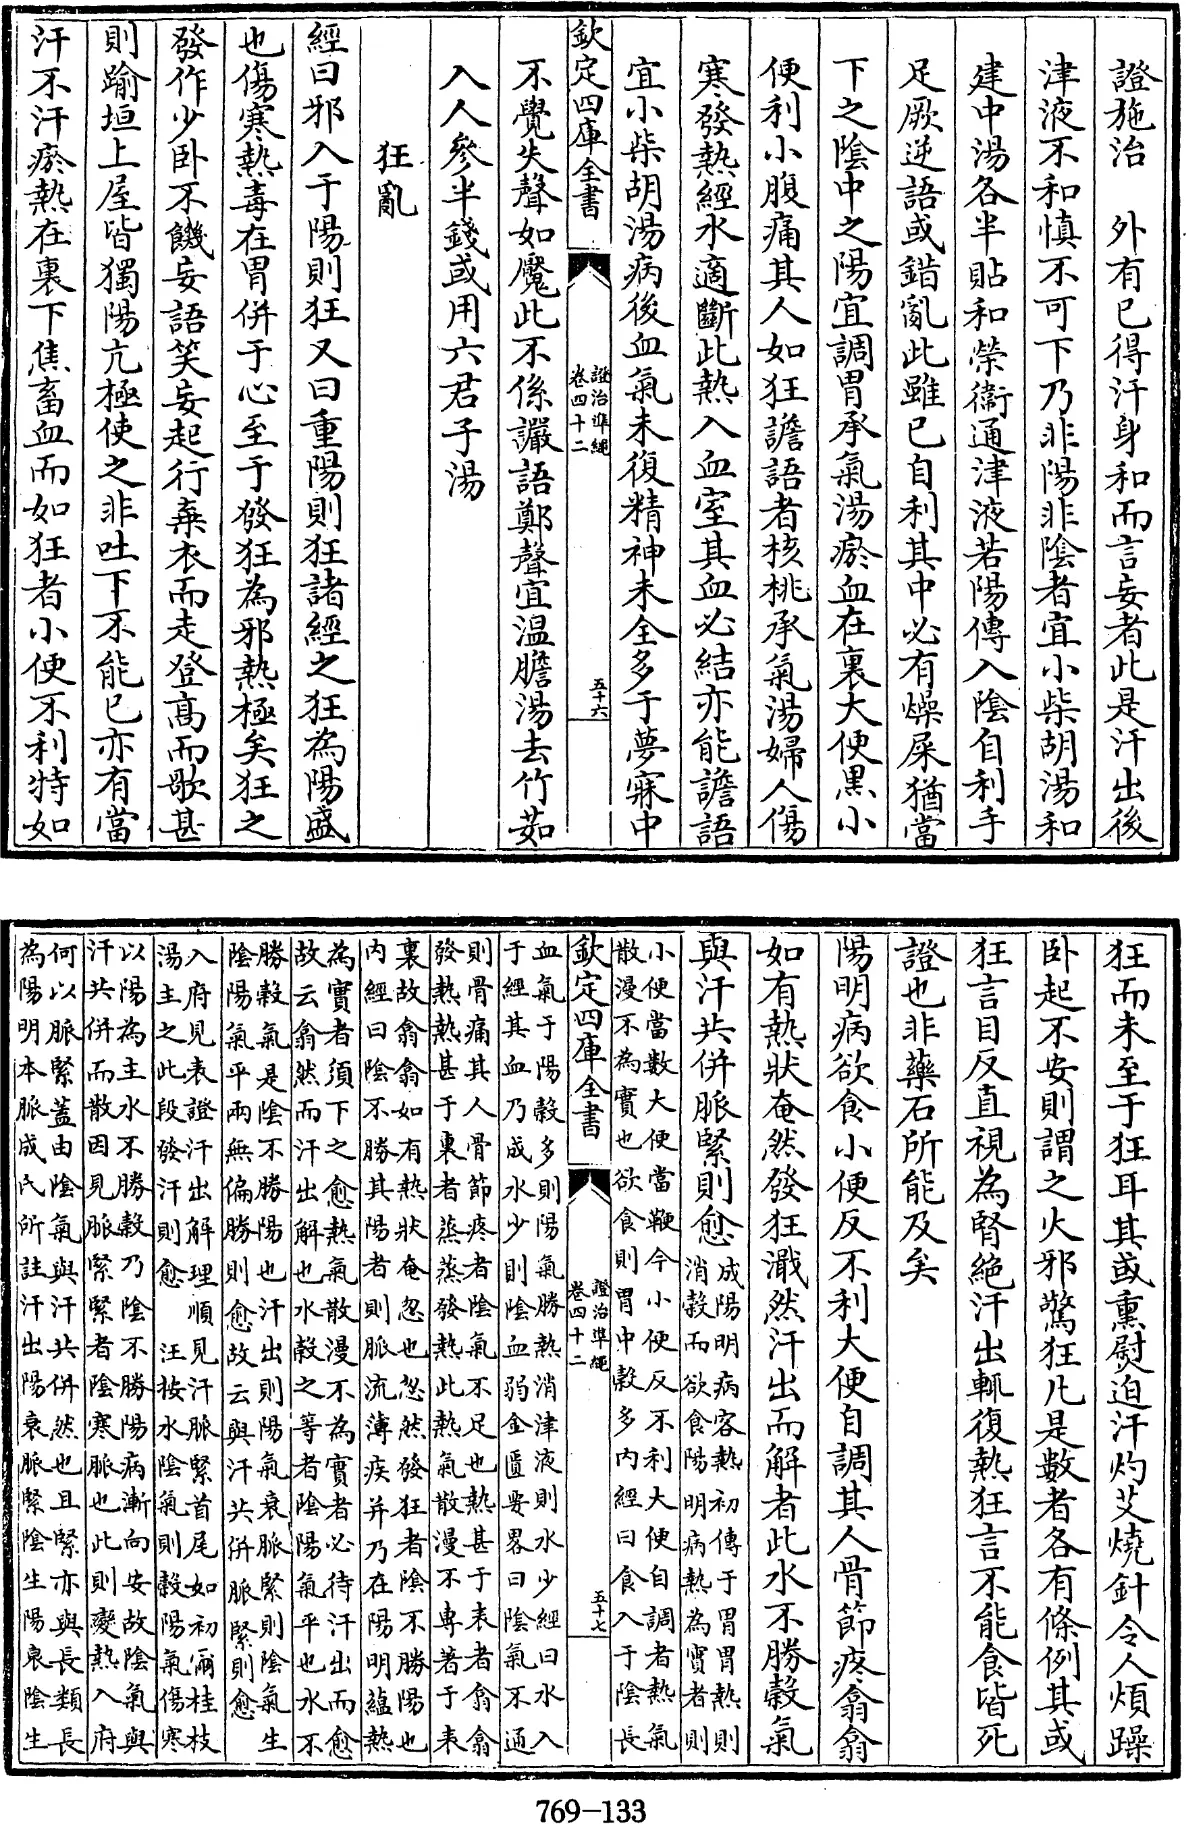 證施治　外有已得汗身和而言妄者此是汗出後
津液不和慎不可下乃非陽非陰者宜小柴胡湯和
建中湯各半貼和榮衛通津液若陽傳入陰自利手
足厥逆語或錯亂此雖已自利其中必有燥屎猶當
下之陰中之陽宜調胃承氣湯瘀血在裏大便黒小
便利小腹痛其人如狂譫語者核桃承氣湯婦人傷
寒發熱經水適斷此熱入血室其血必結亦能譫語
宜小柴胡湯病後血氣未復精神未全多于夢寐中
欽定四庫全書
證治準繩
卷四十二
五十六
不覺失聲如魘此不係讝語鄭聲宜温膽湯去竹茹
入人參半錢或用六君子湯
狂亂
經曰邪入于陽則狂又曰重陽則狂諸經之狂為陽盛
也傷寒熱毒在胃併于心至于發狂為邪熱極矣狂之
發作少卧不饑妄語笑妄起行棄衣而走登髙而歌甚
則踰垣上屋皆獨陽亢極使之非吐下不能已亦有當
汗不汗瘀熱在裏下焦畜血而如狂者小便不利特如
狂而未至于狂耳其或熏熨迫汗灼艾燒針令人煩躁
卧起不安則謂之火邪驚狂凡是數者各有條例其或
狂言目反直視為腎絶汗出輒復熱狂言不能食皆死
證也非藥石所能及矣
陽明病欲食小便反不利大便自調其人骨節疼翕翕
如有熱狀奄然發狂濈然汗出而解者此水不勝穀氣
與汗共併脈緊則愈
成陽明病客熱初傳于胃胃熱則
消穀而欲食陽明病熱為實者則
小便當數大便當鞕今小便反不利大便自調者熱氣
散漫不為實也欲食則胃中穀多内經曰食入于陰長
欽定四庫全書
證治準繩
卷四十二
五十七
血氣于陽穀多則陽氣勝熱消津液則水少經曰水入
于經其血乃成水少則陰血弱金匱要畧曰陰氣不通
則骨痛其人骨節疼者陰氣不足也熱甚于表者翕翕
發熱熱甚于裏者蒸蒸發熱此熱氣散漫不専著于表
裏故翕翕如有熱狀奄忽也忽然發狂者陰不勝陽也
内經曰陰不勝其陽者則脈流薄疾并乃在陽明蘊熱
為實者須下之愈熱氣散漫不為實者必待汗出而愈
故云翕然而汗出解也水穀之等者陰陽氣平也水不
勝穀氣是陰不勝陽也汗出則陽氣衰脈緊則陰氣生
陰陽氣平兩無偏勝則愈故云與汗共併脈緊則愈
入府見表證汗出解理順見汗脈緊首尾如初宻桂枝
湯主之此段發汗則愈　汪按水陰氣則穀陽氣傷寒
以陽為主水不勝穀乃陰不勝陽病漸向安故陰氣與
汗共併而散因見脈緊緊者陰寒脈也此則變熱入府
何以脈緊蓋由陰氣與汗共併然也且緊亦與長類長
為陽明本脈成氏所註汗出陽衰脈緊陰生陽衰陰生
769-133